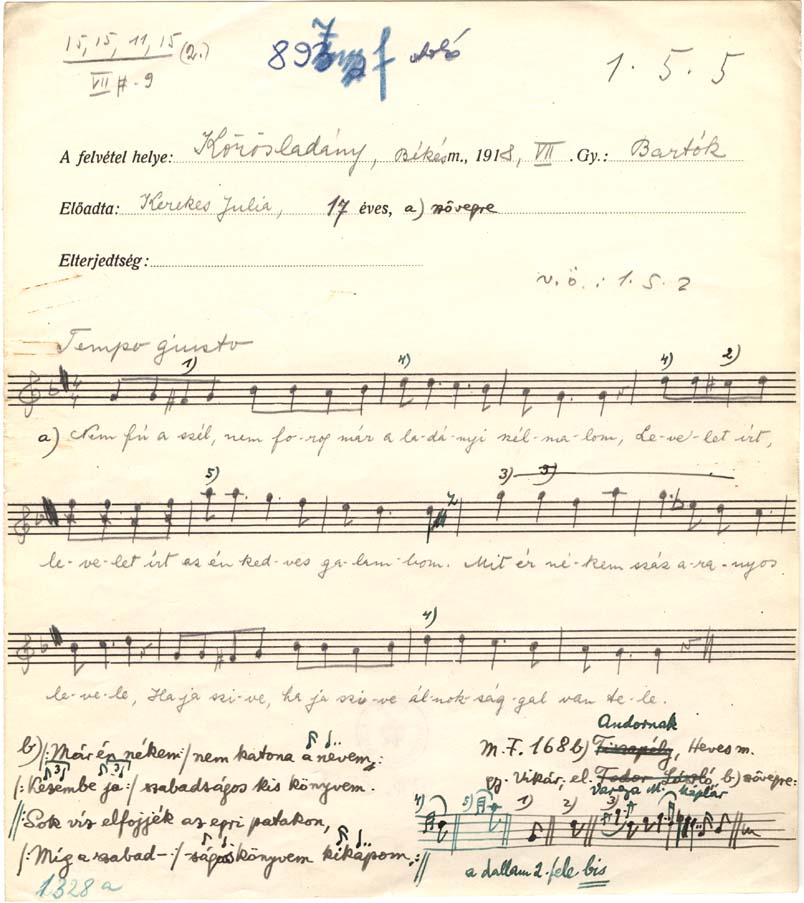 15, 15, 11, 15 (2.)
VII # - 9
893
1 . 5 . 5
A felvétel helye: Körösladány, Békés m., 1918, VII . Gy.: Bartók
Előadta: Kerekes Julia, 17 éves, a) szövegre
Elterjedtség:
v. ö. : 1 . 5 . 2
Tempo giusto
1) 4) 4) 2)
a) Nem fú a szél, nem fo-rog már a la-dá-nyi szél-ma-lom, Le-ve-let írt,
5) 3) 3)
le-ve-let írt az én ked-ves ga-lam-bom. Mit ér né-kem száz a-ra-nyos
4)
le-ve-le, Ha ja szi-ve, ha ja szi-ve ál-nok-ság-gal van te-le.
b) |: Már én nékem :| nem katona a nevem,
|: Kezembe ja :| szabadságos kis könyvem.
Sok víz elfojjék az egri patakon,
|: Míg a szabad- :| -ságos könyvem kikapom, :||
1328 a
Andornak
M.F. 1682 b) Tiszapély, Heves m.
gy. Vikár, el. Fodor László, b) szövegre:
Varga M. káplár
4) 5) 1) 2) 3)
a dallam 2. fele bis